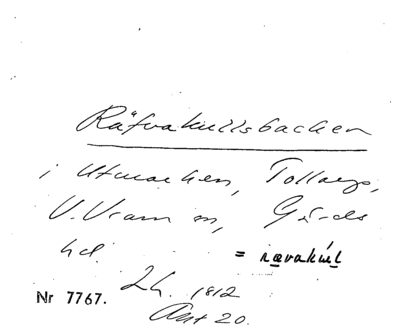 Räfvakullsbacken
i Utmarken, Tollarp,
V. Vram sn, Gärds
hd
= rævakul
Lh. 1812
Akt 20.
Nr 7767.